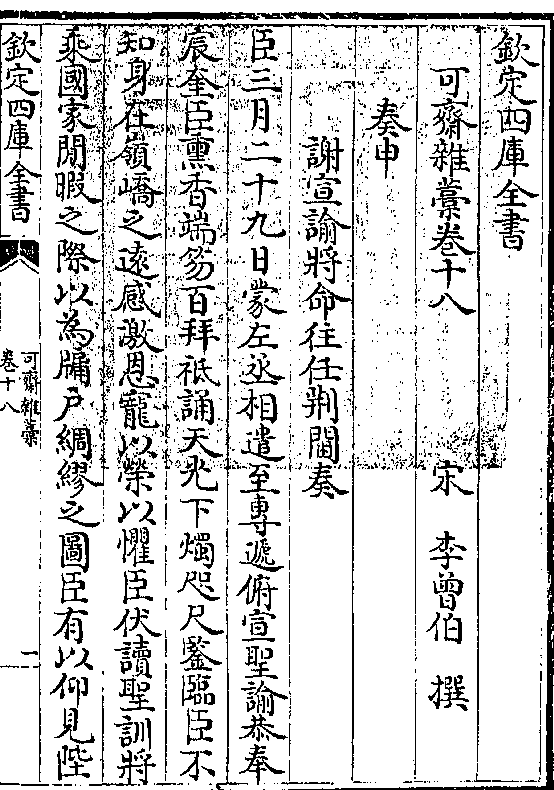 欽定四庫全書
可齋雜藁卷十八
宋 李曾伯 撰
奏申
謝宣諭將命往任荆閫奏
臣三月二十九日蒙左丞相遣至專遞俯宣聖諭恭奉
宸奎臣熏香端笏百拜祗誦天光下燭咫尺鑒臨臣不
知身在嶺嶠之遠感激恩寵以榮以懼臣伏讀聖訓將
乘國家閒暇之際以為牖戶綢繆之圖臣有以仰見陛
欽定四庫全書
可齋雜藁
卷十八
一